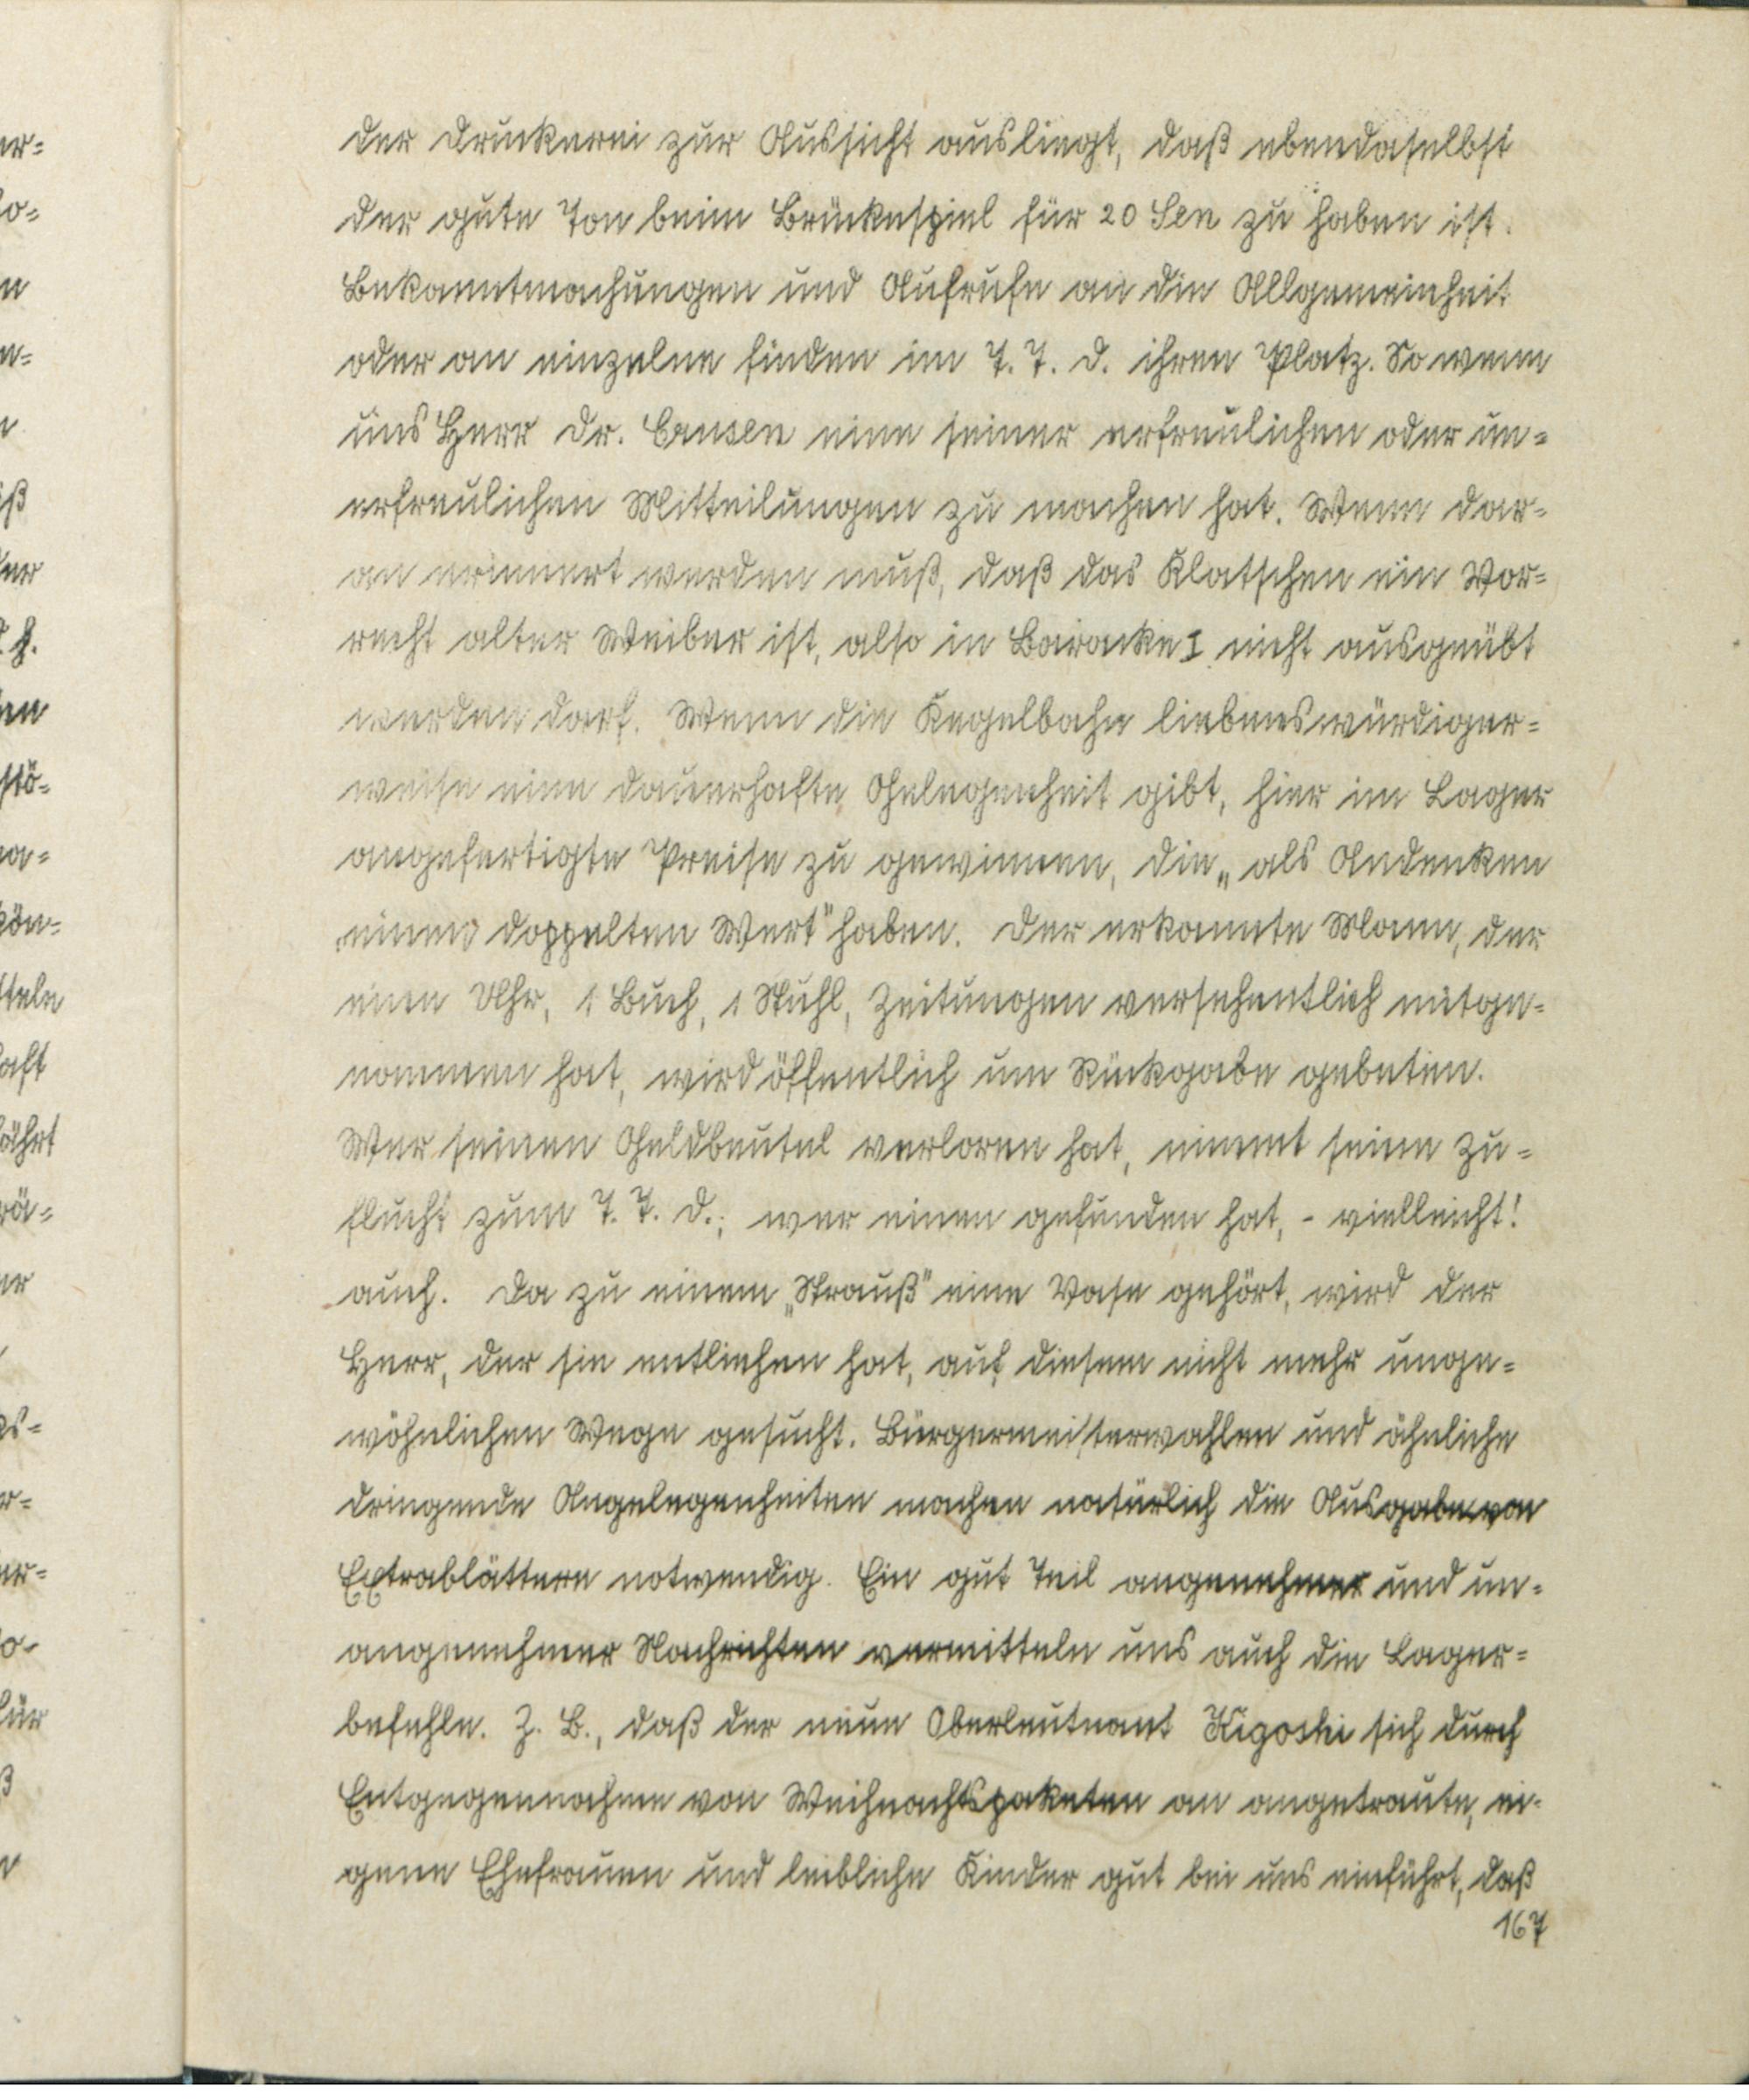 der Druckerei zur Aussicht ausliegt, daß ebendaselbst
der gute Ton beim Brückespiel für 20 Sen zu haben ist.
Bekanntmachungen und Aufrufe an die Allgemeinheit
oder an einzelne finden im T. T. D. ihren Platz. So wenn
uns Herr Dr. Crusen eine seiner erfreulichen oder un-
erfreulichen Mitteilungen zu machen hat. Wenn dar-
an erinnert werden muß, daß das Klatschen ein Vor-
recht alter Weiber ist, also in Baracke I nicht ausgeübt
werden darf. Wenn die Kegelbahn liebenswürdiger-
weise eine dauerhafte Gelegenheit gibt, hier im Lager
angefertigte Preise zu gewinnen, die „als Andenken
einen doppelten Wert" haben. Der erkannte Mann, der
eine Uhr, 1 Buch, 1 Stuhl, Zeitungen versehentlich mitge-
nommen hat, wird öffentlich um Rückgabe gebeten.
Wer seinen Geldbeutel verloren hat, nimmt seine Zu-
flucht zum T. T. D.; wer einen gefunden hat, - vielleicht!
auch. Da zu einem „Strauß" eine Vase gehört, wird der
Herr, der sie entliehen hat, auf diesem nicht mehr unge-
wöhnlichen Wege gesucht. Bürgermeisterwahlen und ähnliche
dringende Angelegenheiten machen natürlich die Ausgabe von
Extrablättern notwendig. Ein gut Teil angenehmer und un-
angenehmer Nachrichten vermitteln uns auch die Lager-
befehle. Z. B., daß der neue Oberleutnant Kigoshi sich durch
Entgegennahme von Weihnachtspaketen an angetraute, ei-
gene Ehefrauen und leibliche Kinder gut bei uns einführt, daß
167